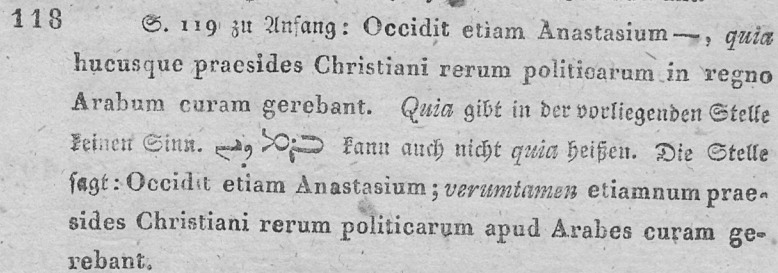 118 S. 119 zu Anfang: Occidit etiam Anastasium—, quia
hucusque praesides Christiani rerum politicarum in regno
Arabum curam gerebant. Quia gibt in der vorliegenden Stelle
keinen Sinn. kann auch nicht quia heißen. Die Stelle
sagt: Occidit etiam Anastasium; verumtamen etiamnum prae-
sides Christiani rerum politicarum apud Arabes curam ge-
rebant.